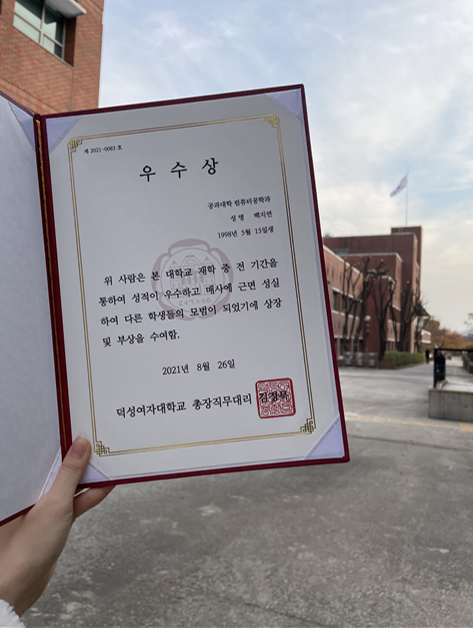 제 2021-0083 호
우 수 상
공과대학 컴퓨터공학과
성 명 백지연
1998년 5월 15일생
위 사람은 본 대학교 재학 중 전 기간을
통하여 성적이 우수하고 매사에 근면 성실
하여 다른 학생들의 모범이 되었기에 상장
및 부상을 수여함.
2021년 8월 26일
덕성여자대학교 총장직무대리